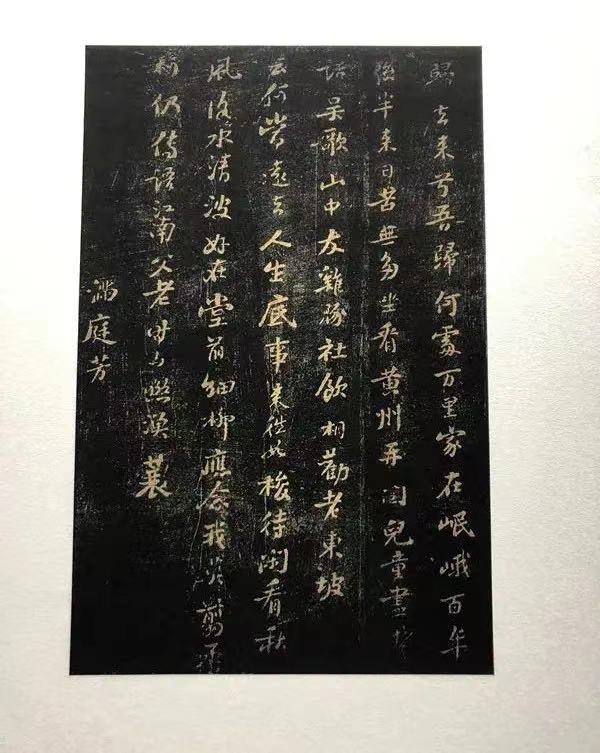 歸去来兮吾歸何處万里家在岷峨百年
強半来日苦無多坐看黄州再閏兒童盡楚
語吴歌山中友雞豚社飲相勸老東坡
云何當遠去人生底事来往如梭待閑看秋
風洛水清波好在堂前細柳應念我莫剪柔
柯仍傳語江南父老時与曬漁蓑
滿庭芳